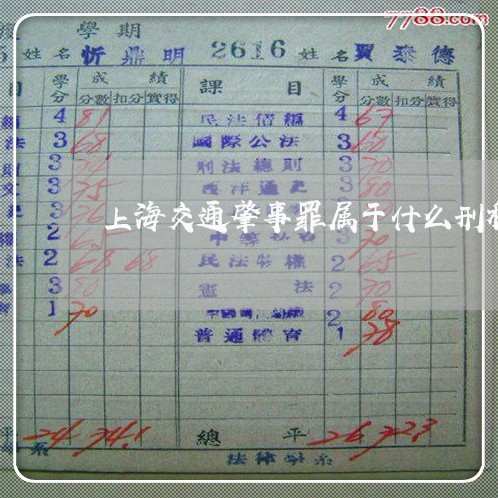 7788.com
學期
姓名 忻鼎明 2616 姓名 賈泰德
目 學分 成績 課目 學分 成績
分數 扣分 實得 分數 扣分 實得
4 81 民法債編 4 67
法 3 68 國際公法 3 60
則 3 刑法總則 3 70
3 75 西洋通史 3 80
上海交通肇事罪属于什么刑
2 65 3 70
法 2 68 68 民法物權 2 65
3 80 憲法 2 70
育 1 70 2 80
普通體育 1 78
平 24 74.1 總平 26 72.3
系 法律學系